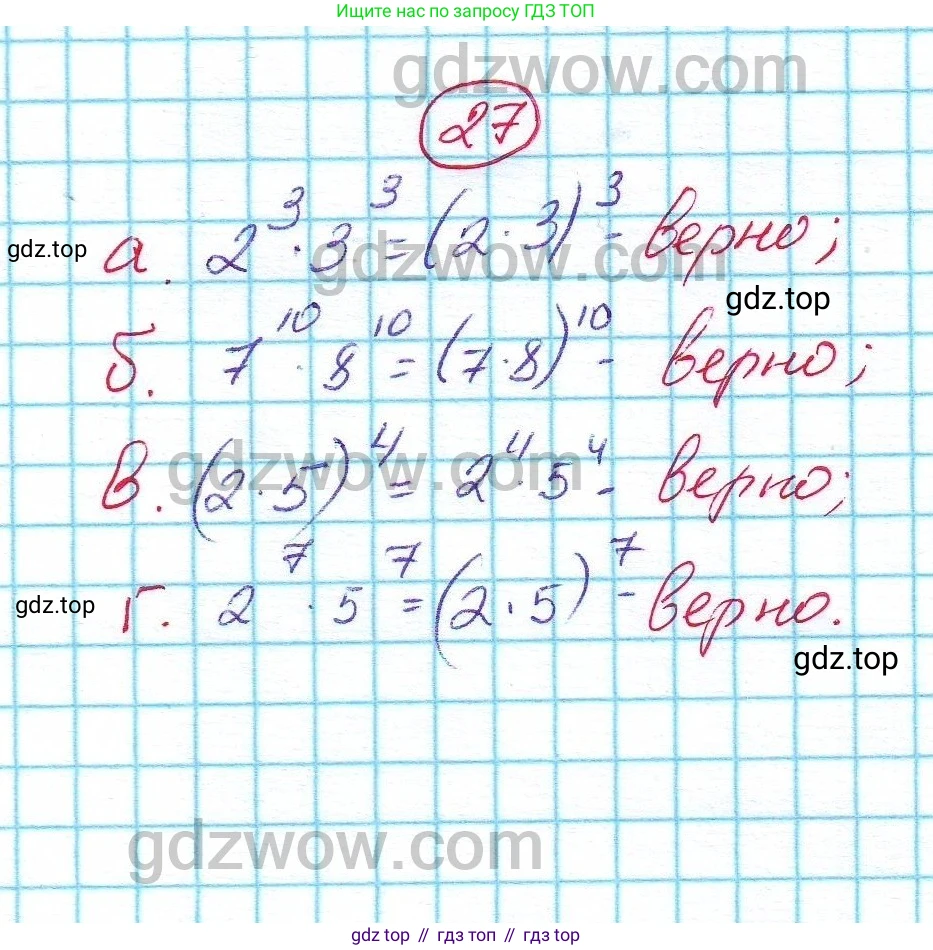 Ищите нас по запросу ГДЗ ТОП
gdzwow.com
27
gdz.top
а. 2³ · 3³ = (2 · 3)³ - верно;
gdzwow.com
gdz.top
б. 7¹⁰ · 8¹⁰ = (7 · 8)¹⁰ - верно;
gdzwow.com
в. (2 · 5)⁴ = 2⁴ · 5⁴ - верно;
gdz.top
г. 2⁷ · 5⁷ = (2 · 5)⁷ - верно.
gdz.top
gdzwow.com
gdz top // гдз топ // gdz top